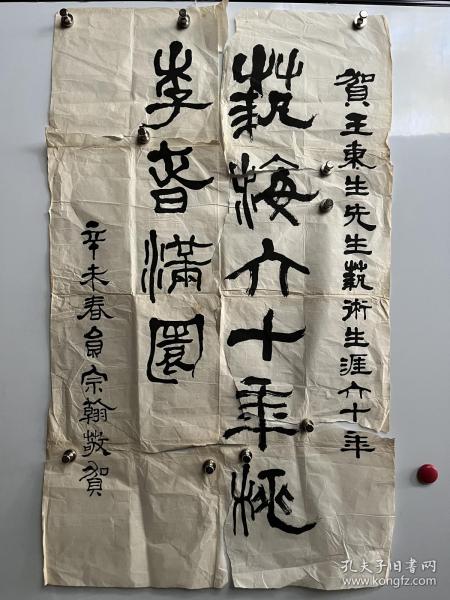 賀王東生先生藝術生涯六十年
藝海六十年桃
李香滿園
辛未春員宗翰敬賀
孔夫子旧书网
www.kongfz.com